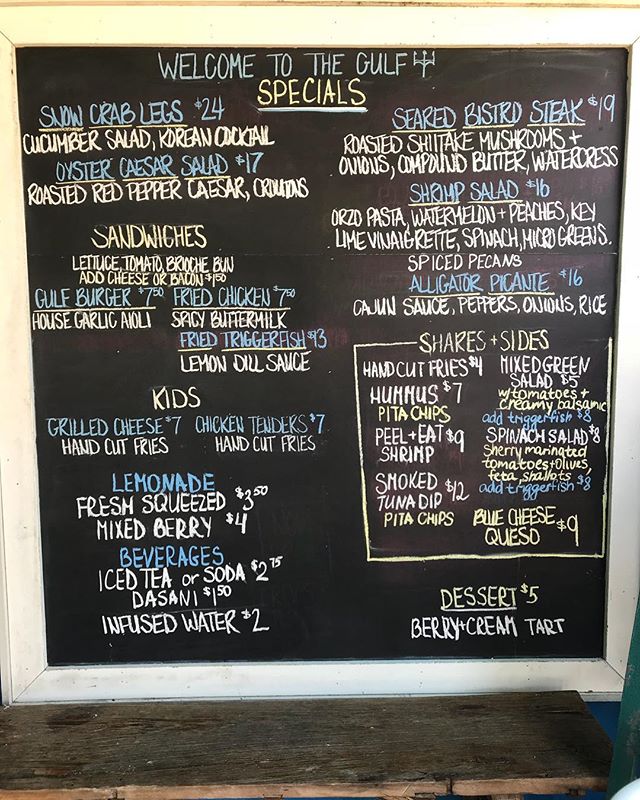 WELCOME TO THE GULF
SPECIALS
SNOW CRAB LEGS $24
CUCUMBER SALAD, KOREAN COCKTAIL
OYSTER CAESAR SALAD $17
ROASTED RED PEPPER CAESAR, CROUTONS
SEARED BISTRO STEAK $19
ROASTED SHIITAKE MUSHROOMS +
ONIONS, COMPOUND BUTTER, WATERCRESS
SHRIMP SALAD $16
ORZO PASTA, WATERMELON + PEACHES, KEY
LIME VINAIGRETTE, SPINACH, MICRO GREENS.
SPICED PECANS
ALLIGATOR PICANTE $16
CAJUN SAUCE, PEPPERS, ONIONS, RICE
SANDWICHES
LETTUCE, TOMATO, BRIOCHE BUN
ADD CHEESE OR BACON $1.50
GULF BURGER $7.50
HOUSE GARLIC AIOLI
FRIED CHICKEN $7.50
SPICY BUTTERMILK
FRIED TRIGGERFISH $13
LEMON DILL SAUCE
KIDS
GRILLED CHEESE $7
HAND CUT FRIES
CHICKEN TENDERS $7
HAND CUT FRIES
LEMONADE
FRESH SQUEEZED $3.50
MIXED BERRY $4
BEVERAGES
ICED TEA or SODA $2.75
DASANI $1.50
INFUSED WATER $2
SHARES + SIDES
HAND CUT FRIES $4
HUMMUS $7
PITA CHIPS
PEEL + EAT $9
SHRIMP
SMOKED
TUNA DIP $12
PITA CHIPS
MIXED GREEN
SALAD $5
w/ tomatoes +
creamy balsamic
add triggerfish $8
SPINACH SALAD $8
Sherry marinated
tomatoes + olives,
feta, shallots
add triggerfish $8
BLUE CHEESE $9
QUESO
DESSERT $5
BERRY + CREAM TART